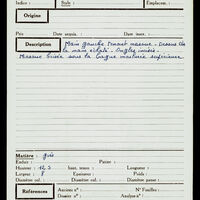 Indice : Série : Emplacem. :
Origine
Pce Date acquis. : Date insc. :
Description Main gauche tenant masque. Dessus de
la main éclaté. Ongles incisés.
Masque brisé sous la longue mouture supérieure.
Matière : grès
Enduit : Patine :
Hauteur : 12,3 haut. tenon : Longueur :
Largeur : 8 Epaisseur : Poids :
Diamètre col. : Diamètre panse :
Références Anciens n° : N° Fouilles :
Dossier n° : Analyse n° :